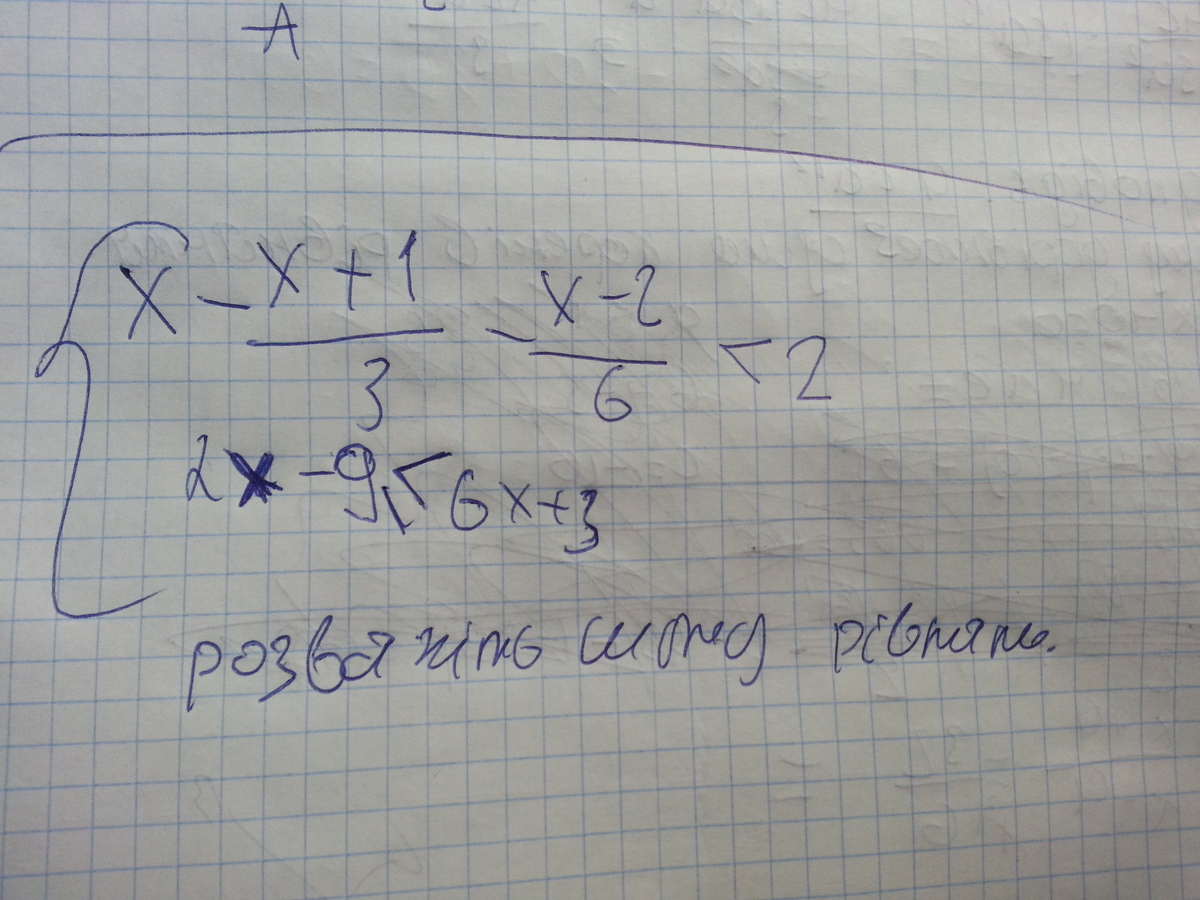 A
x - x + 1 / 3 - x - 2 / 6 < 2
2x - 9 < 6x + 3
розвяжіть систему рівнянь.